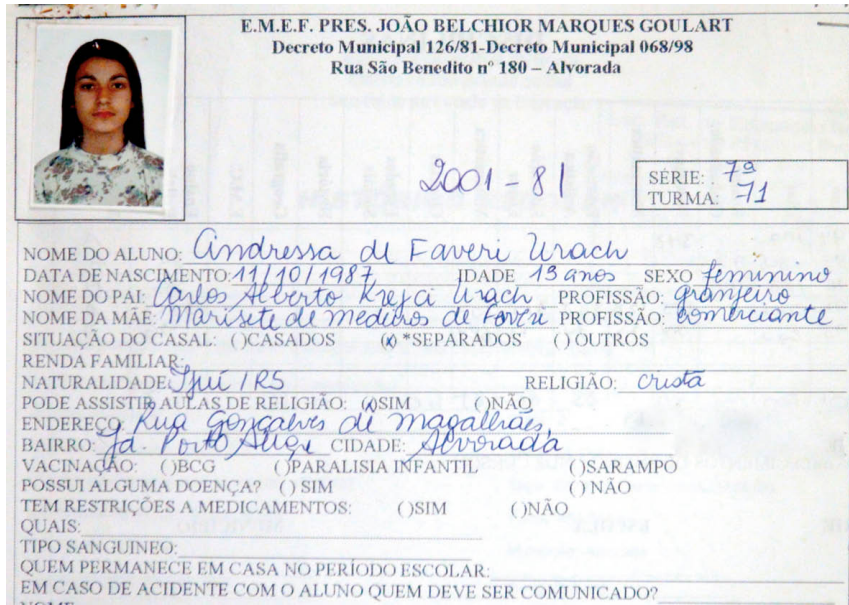 E.M.E.F. PRES. JOÃO BELCHIOR MARQUES GOULART
Decreto Municipal 126/81-Decreto Municipal 068/98
Rua São Benedito nº 180 – Alvorada
2001 - 81
SÉRIE: 7ª
TURMA: 71
NOME DO ALUNO: Andressa de Faveri Urach
DATA DE NASCIMENTO: 11/10/1987 IDADE 13 anos SEXO feminino
NOME DO PAI: Carlos Alberto Krejci Urach PROFISSÃO: granjeiro
NOME DA MÃE: Marisete de Medeiros de Faveri PROFISSÃO: comerciante
SITUAÇÃO DO CASAL: ( )CASADOS (x) *SEPARADOS ( ) OUTROS
RENDA FAMILIAR:
NATURALIDADE: Ijuí / RS RELIGIÃO: cristã
PODE ASSISTIR AULAS DE RELIGIÃO: (x)SIM ( )NÃO
ENDEREÇO: Rua Gonçalves de Magalhães,
BAIRRO: Jd. Porto Alegre CIDADE: Alvorada
VACINAÇÃO: ( )BCG ( )PARALISIA INFANTIL ( )SARAMPO
POSSUI ALGUMA DOENÇA? ( ) SIM ( ) NÃO
TEM RESTRIÇÕES A MEDICAMENTOS: ( )SIM ( )NÃO
QUAIS:
TIPO SANGUINEO:
QUEM PERMANECE EM CASA NO PERÍODO ESCOLAR:
EM CASO DE ACIDENTE COM O ALUNO QUEM DEVE SER COMUNICADO?